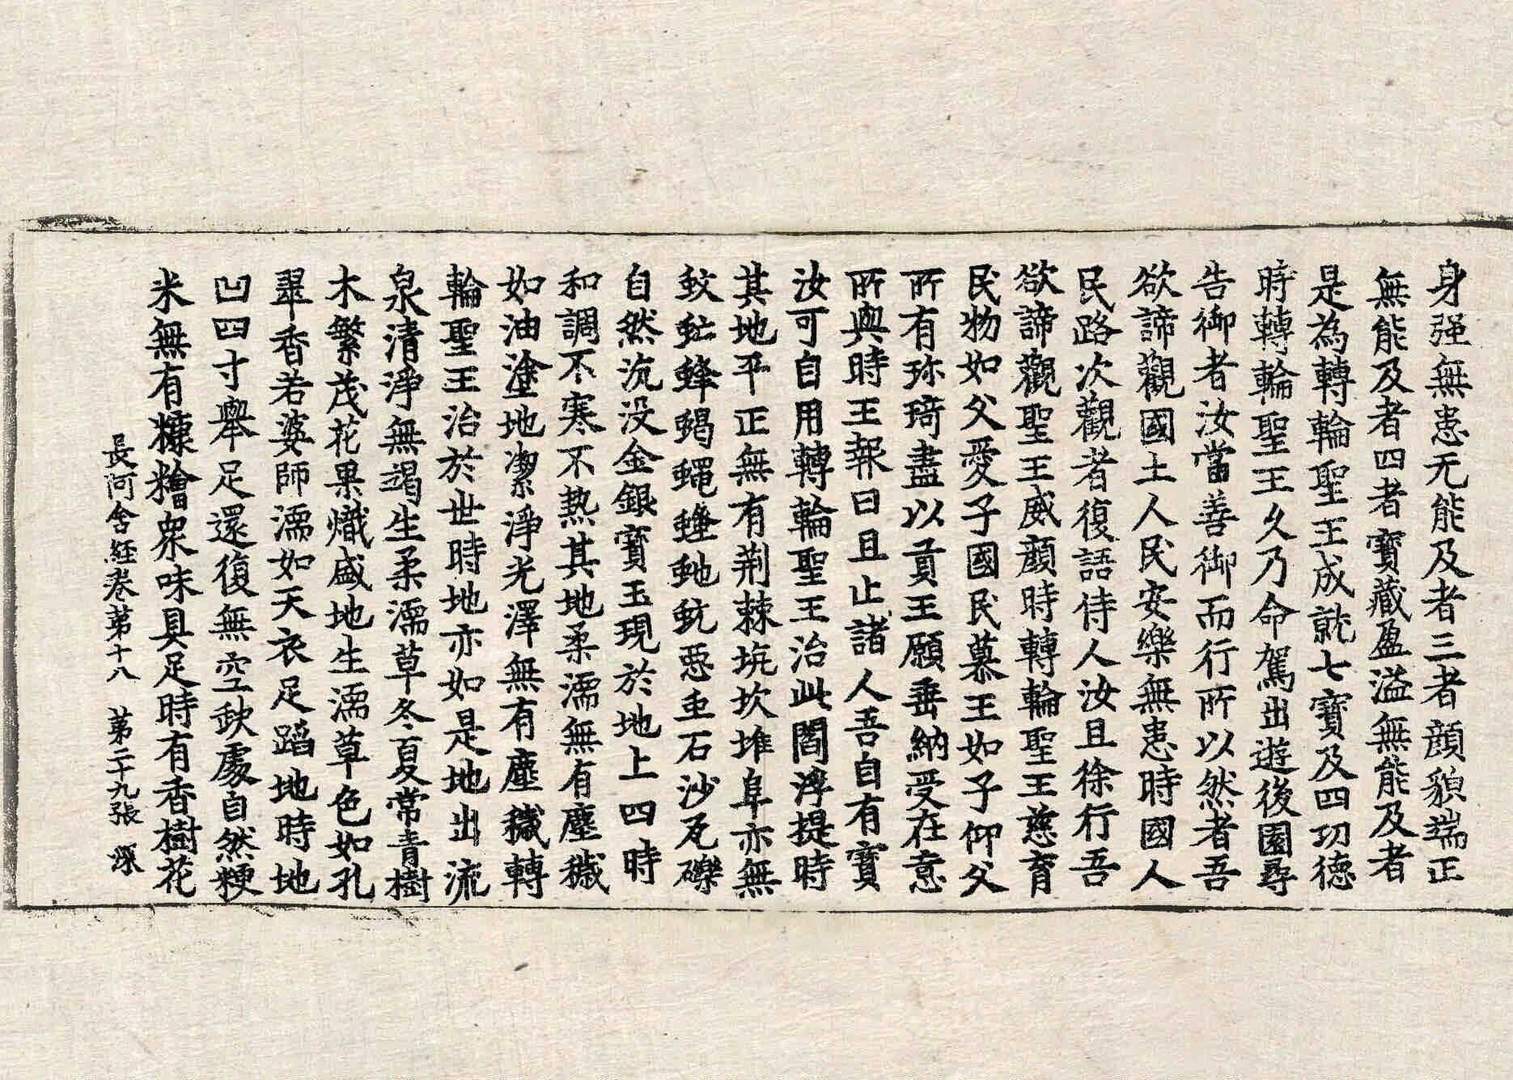 身强無恚无能及者三者顔貌端正
無能及者四者寶藏盈溢無能及者
是為轉輪聖王成就七寶及四功德
時轉輪聖王久乃命駕出遊後園尋
告御者汝當善御而行所以然者吾
欲諦觀國土人民安樂無恚時國人
民路次觀者復語侍人汝且徐行吾
欲諦觀聖王威顔時轉輪聖王慈育
民物如父愛子國民慕王如子仰父
所有珎琦盡以貢王願垂納受在意
所與時王報曰且止諸人吾自有寶
汝可自用轉輪聖王治此閻浮提時
其地平正無有荆棘坑坎堆阜亦無
蚊虻蜂蝎蠅蚤虵蚖惡虫石沙瓦礫
自然沉没金銀寶玉現於地上四時
和調不寒不熱其地柔濡無有塵穢
如油塗地潔淨光澤無有塵穢轉
輪聖王治於世時地亦如是地出流
泉清淨無竭生柔濡草冬夏常青樹
木繁茂花果熾盛地生濡草色如孔
翠香若婆師濡如天衣足蹈地時地
凹四寸舉足還復無空缺處自然粳
米無有糠糩衆味具足時有香樹花
長阿含経卷第十八 第二十九張 源